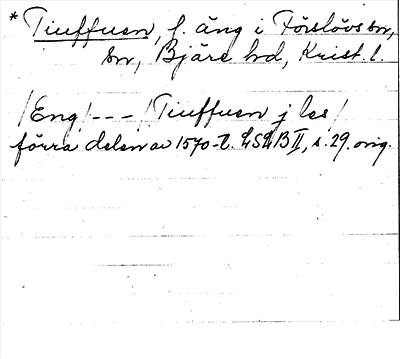 * Tiuffuen, f. äng i Förslövs sn,
sn, Bjäre hd, Krist. l.
/Eng/ --- /Tiuffuen j les/
förra delen av 1570-t. LSLB II, s. 29. orig.